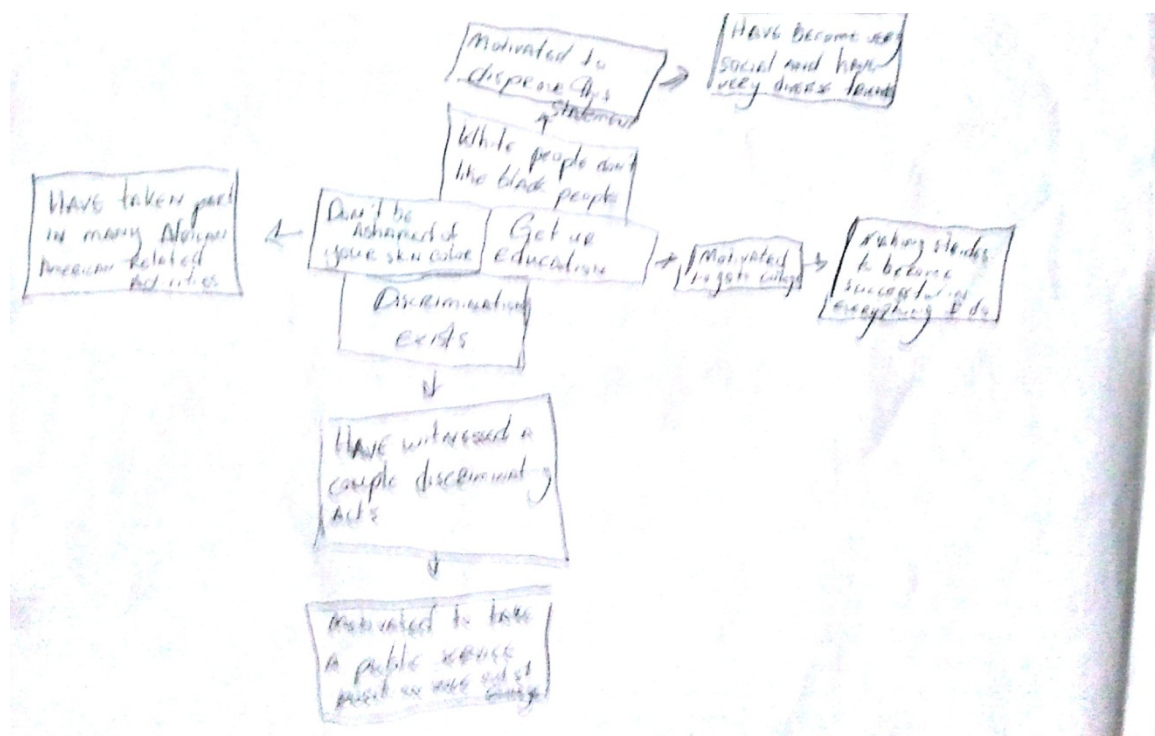 Motivated to
disprove this
statement
HAVE Become very
social and have
very diverse friends
White people don't
like black people
HAVE taken part
in many African
American Related
Activities
Don't be
Ashamed of
your skin color
Get ur
education
Motivated
to go to college
making strides
to become
successful in
everything I do
Discrimination
exists
HAVE witnessed a
couple discriminaty
Acts
Motivated to take
A public service